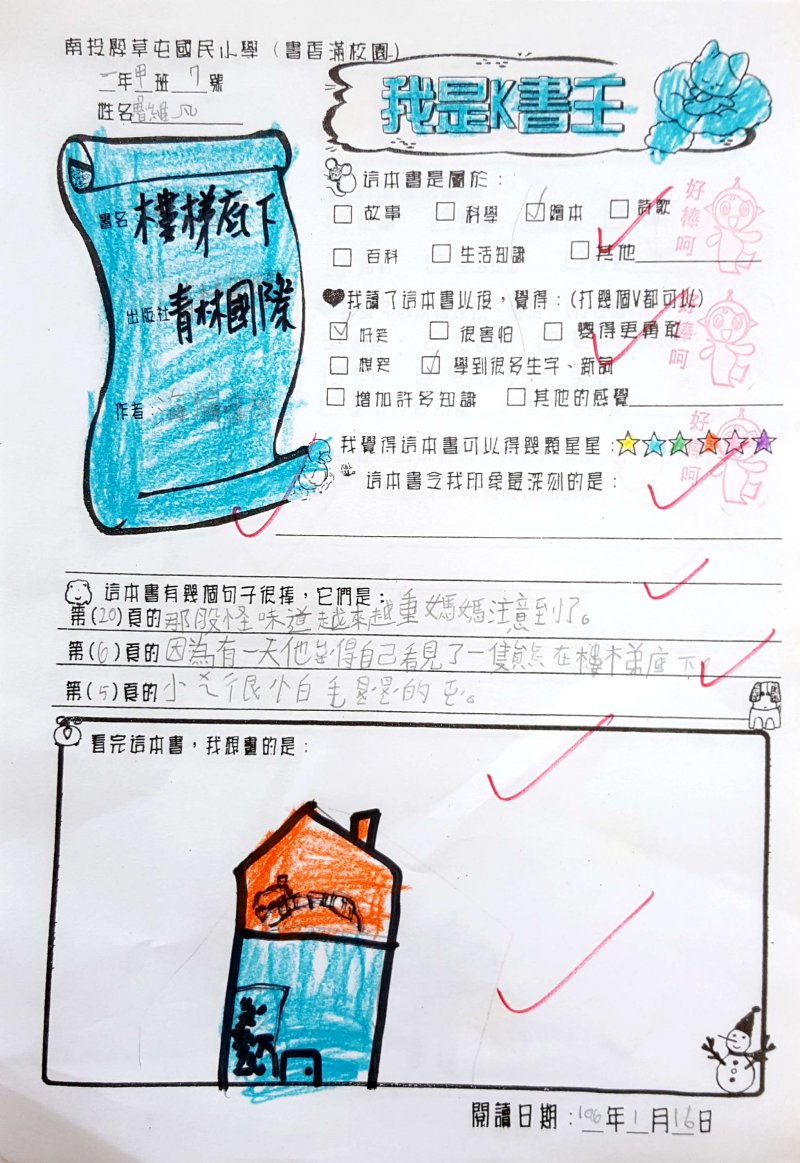 南投縣草屯國民小學（書香滿校園）
一年甲班 7 號
姓名
我是K書王
書名 樓梯底下
出版社 青林國際
作者
這本書是屬於：
□ 故事 □ 科學 ☑ 繪本 □ 詩歌
□ 百科 □ 生活知識 □ 其他
好棒呵
我讀了這本書以後，覺得：(打幾個V都可以)
☑ 好笑 □ 很害怕 □ 變得更勇敢
□ 想哭 ☑ 學到很多生字、新詞
□ 增加許多知識 □ 其他的感覺
好棒呵
我覺得這本書可以得幾顆星星：
好棒呵
這本書令我印象最深刻的是：
這本書有幾個句子很棒，它們是：
第(20)頁的 那股怪味道越來越重媽媽注意到了。
第(6)頁的 因為有一天他覺得自己看見了一隻熊在樓梯底下。
第(5)頁的 小 很怕毛 的
看完這本書，我想畫的是：
閱讀日期：106年1月16日